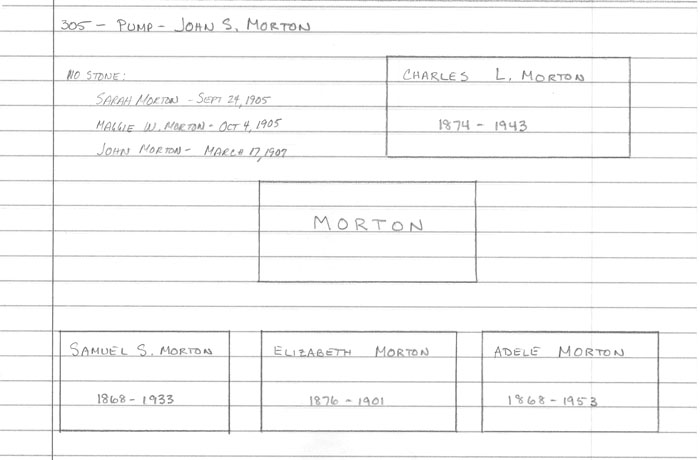 305 - PUMP - JOHN S. MORTON
NO STONE:
SARAH MORTON - SEPT 24, 1905
MAGGIE W. MORTON - OCT 4, 1905
JOHN MORTON - MARCH 17, 1907
CHARLES L. MORTON
1874 - 1943
MORTON
SAMUEL S. MORTON
1868 - 1933
ELIZABETH MORTON
1876 - 1901
ADELE MORTON
1868 - 1953